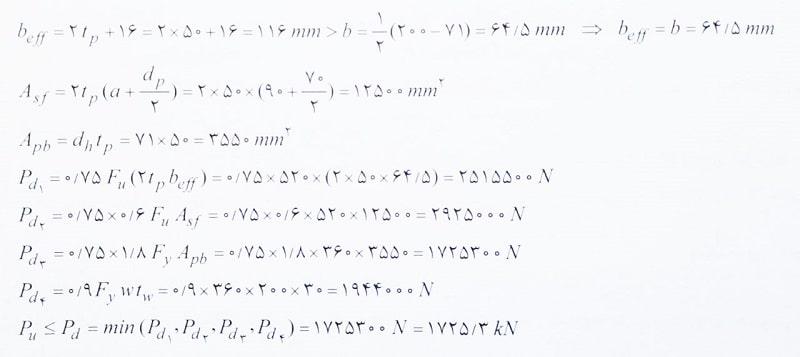 b_eff = ۲ t_p + ۱۶ = ۲×۵۰ + ۱۶ = ۱۱۶ mm > b = ۱/۲ (۲۰۰ − ۷۱) = ۶۴/۵ mm ⇒ b_eff = b = ۶۴/۵ mm
A_sf = ۲t_p (a + d_p/۲) = ۲×۵۰×(۹۰ + ۷۰/۲) = ۱۲۵۰۰ mm^۲
A_pb = d_h t_p = ۷۱×۵۰ = ۳۵۵۰ mm^۲
P_d۱ = ۰/۷۵ F_u (۲t_p b_eff) = ۰/۷۵×۵۲۰×(۲×۵۰×۶۴/۵) = ۲۵۱۵۵۰۰ N
P_d۲ = ۰/۷۵×۰/۶ F_u A_sf = ۰/۷۵×۰/۶×۵۲۰×۱۲۵۰۰ = ۲۹۲۵۰۰۰ N
P_d۳ = ۰/۷۵×۱/۸ F_y A_pb = ۰/۷۵×۱/۸×۳۶۰×۳۵۵۰ = ۱۷۲۵۳۰۰ N
P_d۴ = ۰/۹ F_y wt_w = ۰/۹×۳۶۰×۲۰۰×۳۰ = ۱۹۴۴۰۰۰ N
P_u ≤ P_d = min (P_d۱, P_d۲, P_d۳, P_d۴) = ۱۷۲۵۳۰۰ N = ۱۷۲۵/۳ kN